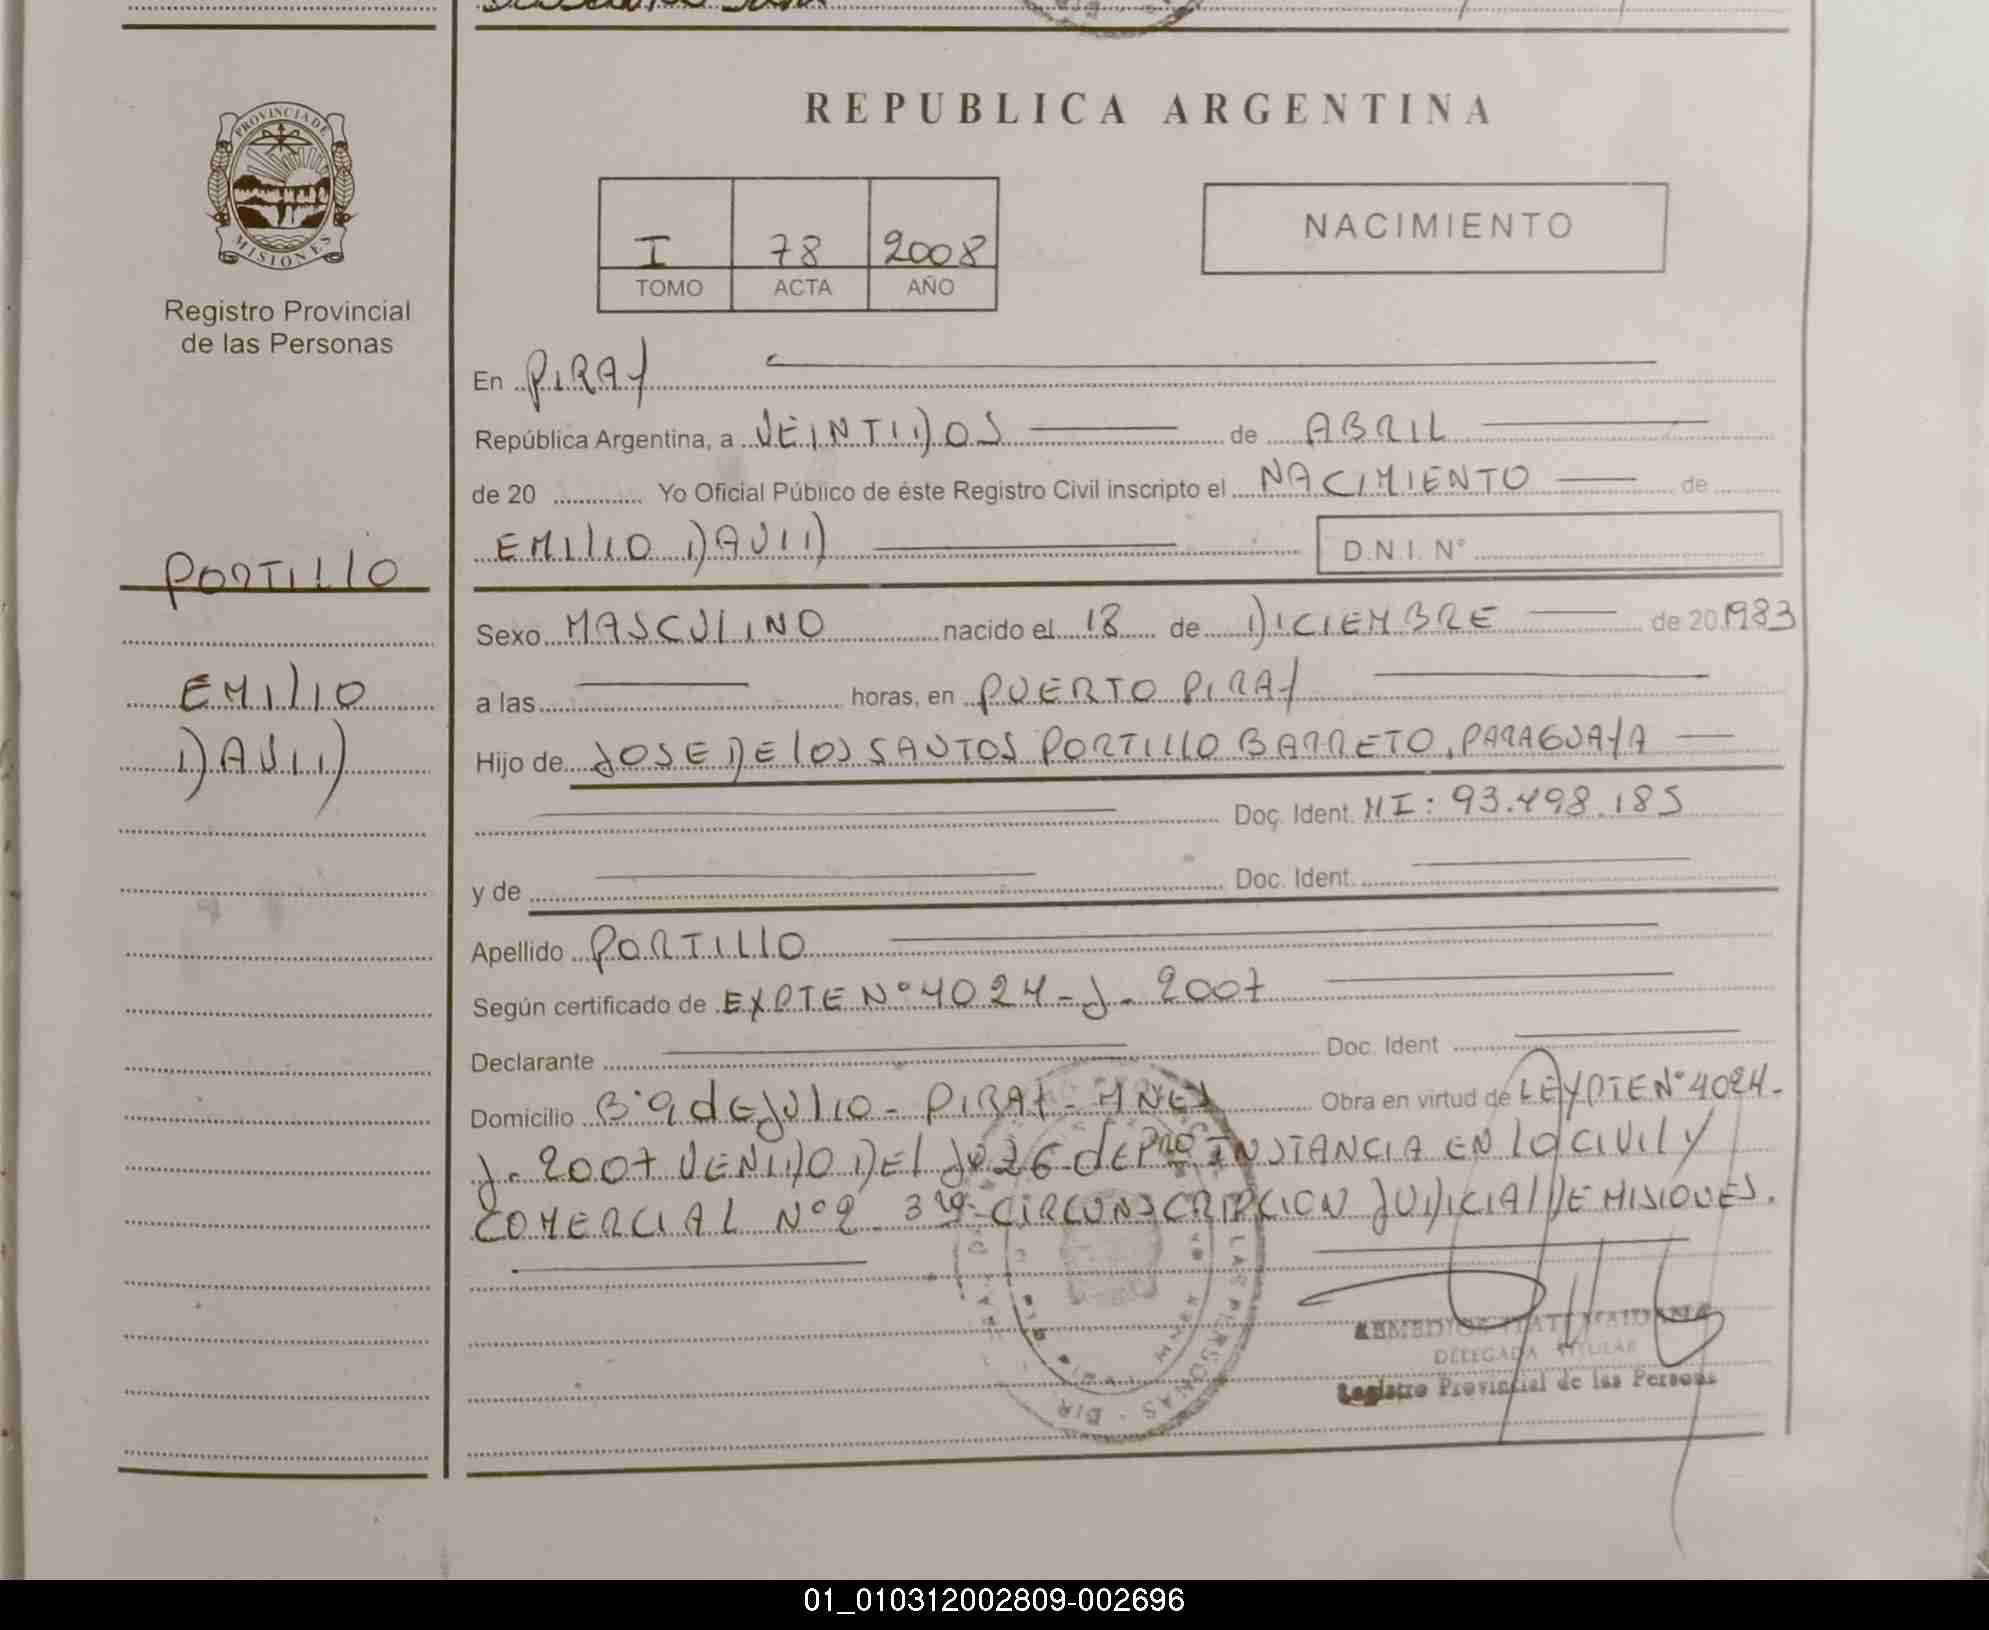 REPUBLICA ARGENTINA
PROVINCIA DE
MISIONES
Registro Provincial
de las Personas
NACIMIENTO
I 78 2008
TOMO ACTA AÑO
En PIRAY
República Argentina, a VEINTIDOS de ABRIL
de 20 Yo Oficial Público de éste Registro Civil inscripto el NACIMIENTO de
EMILIO DAVID D.N.I. N°
PORTILLO
EMILIO
DAVID
Sexo MASCULINO nacido el 18 de DICIEMBRE de 20 1983
a las horas, en PUERTO PIRAY
Hijo de JOSE DE LOS SANTOS PORTILLO BARRETO, PARAGUAYA
Doc. Ident. MI: 93.498.185
y de Doc. Ident.
Apellido PORTILLO
Según certificado de EXPTE N° 4024-J-2007
Declarante Doc. Ident
Domicilio B° 9 de JULIO - PIRAY - MNES Obra en virtud de EXPTE N° 4024-
J-2007 VENIDO DEL de INSTANCIA EN LO CIVIL Y
COMERCIAL N° 2 3ra CIRCUNSCRIPCION JUDICIAL DE MISIONES.
LAS PERSONAS - DIR
DELEGADA TITULAR
Registro Provincial de las Persons
01_010312002809-002696